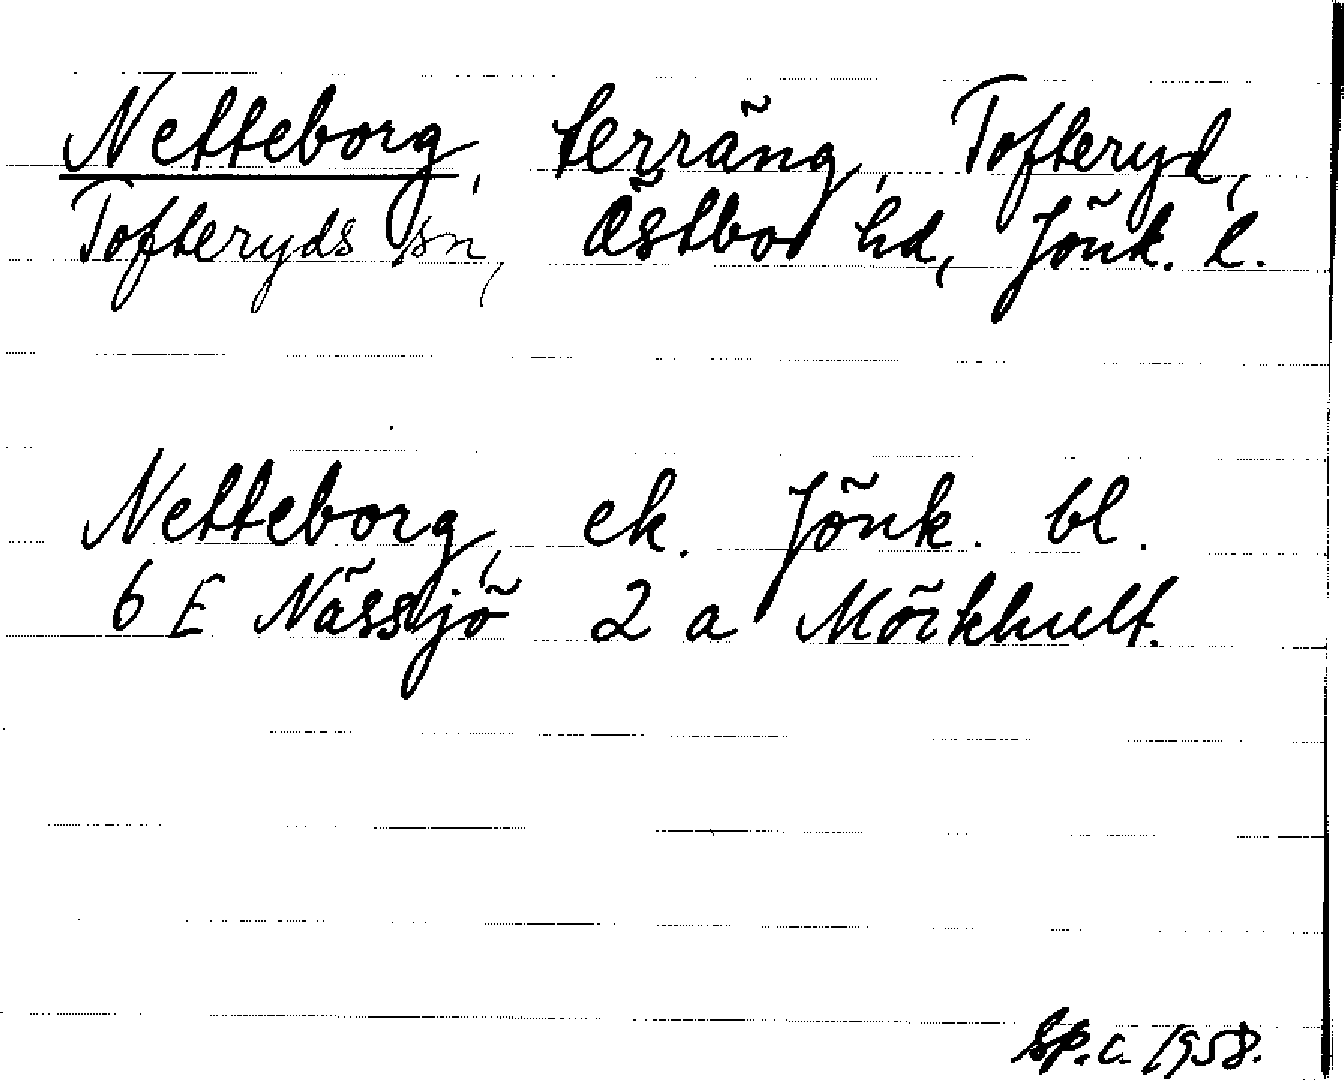 Netteborg, terräng, Tofteryd,
Tofteryds sn, Östbo hd, Jönk. l.
Netteborg, ek. Jönk. bl.
6 E Nässjö 2 a Mörkhult.
Sp.c. 1958.